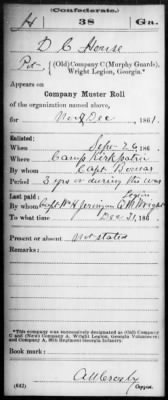 (Confederate.)
H 38 Ga.
D C House
Pvt (Old) Company C (Murphy Guards),
Wright Legion, Georgia.*
Appears on
Company Muster Roll
of the organization named above,
for Nov & Dec, 1861.
Enlisted:
When Sep 26, 186
Where Camp Kirkpatrick
By whom Capt
Period 3 yrs or during the war
Last paid:
By whom Capt W H
To what time Dec 31, 186
Present or absent Not stated
Remarks:
*This company was successively designated as (Old) Company
C and (New) Company A, Wright Legion, Georgia Volunteers;
and Company A, 38th Regiment Georgia Infantry.
Book mark:
(642) Copyist.